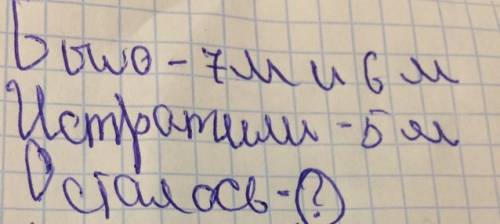 Было - 7 м и 6 м
Истратили - 5 м
Осталось - ?